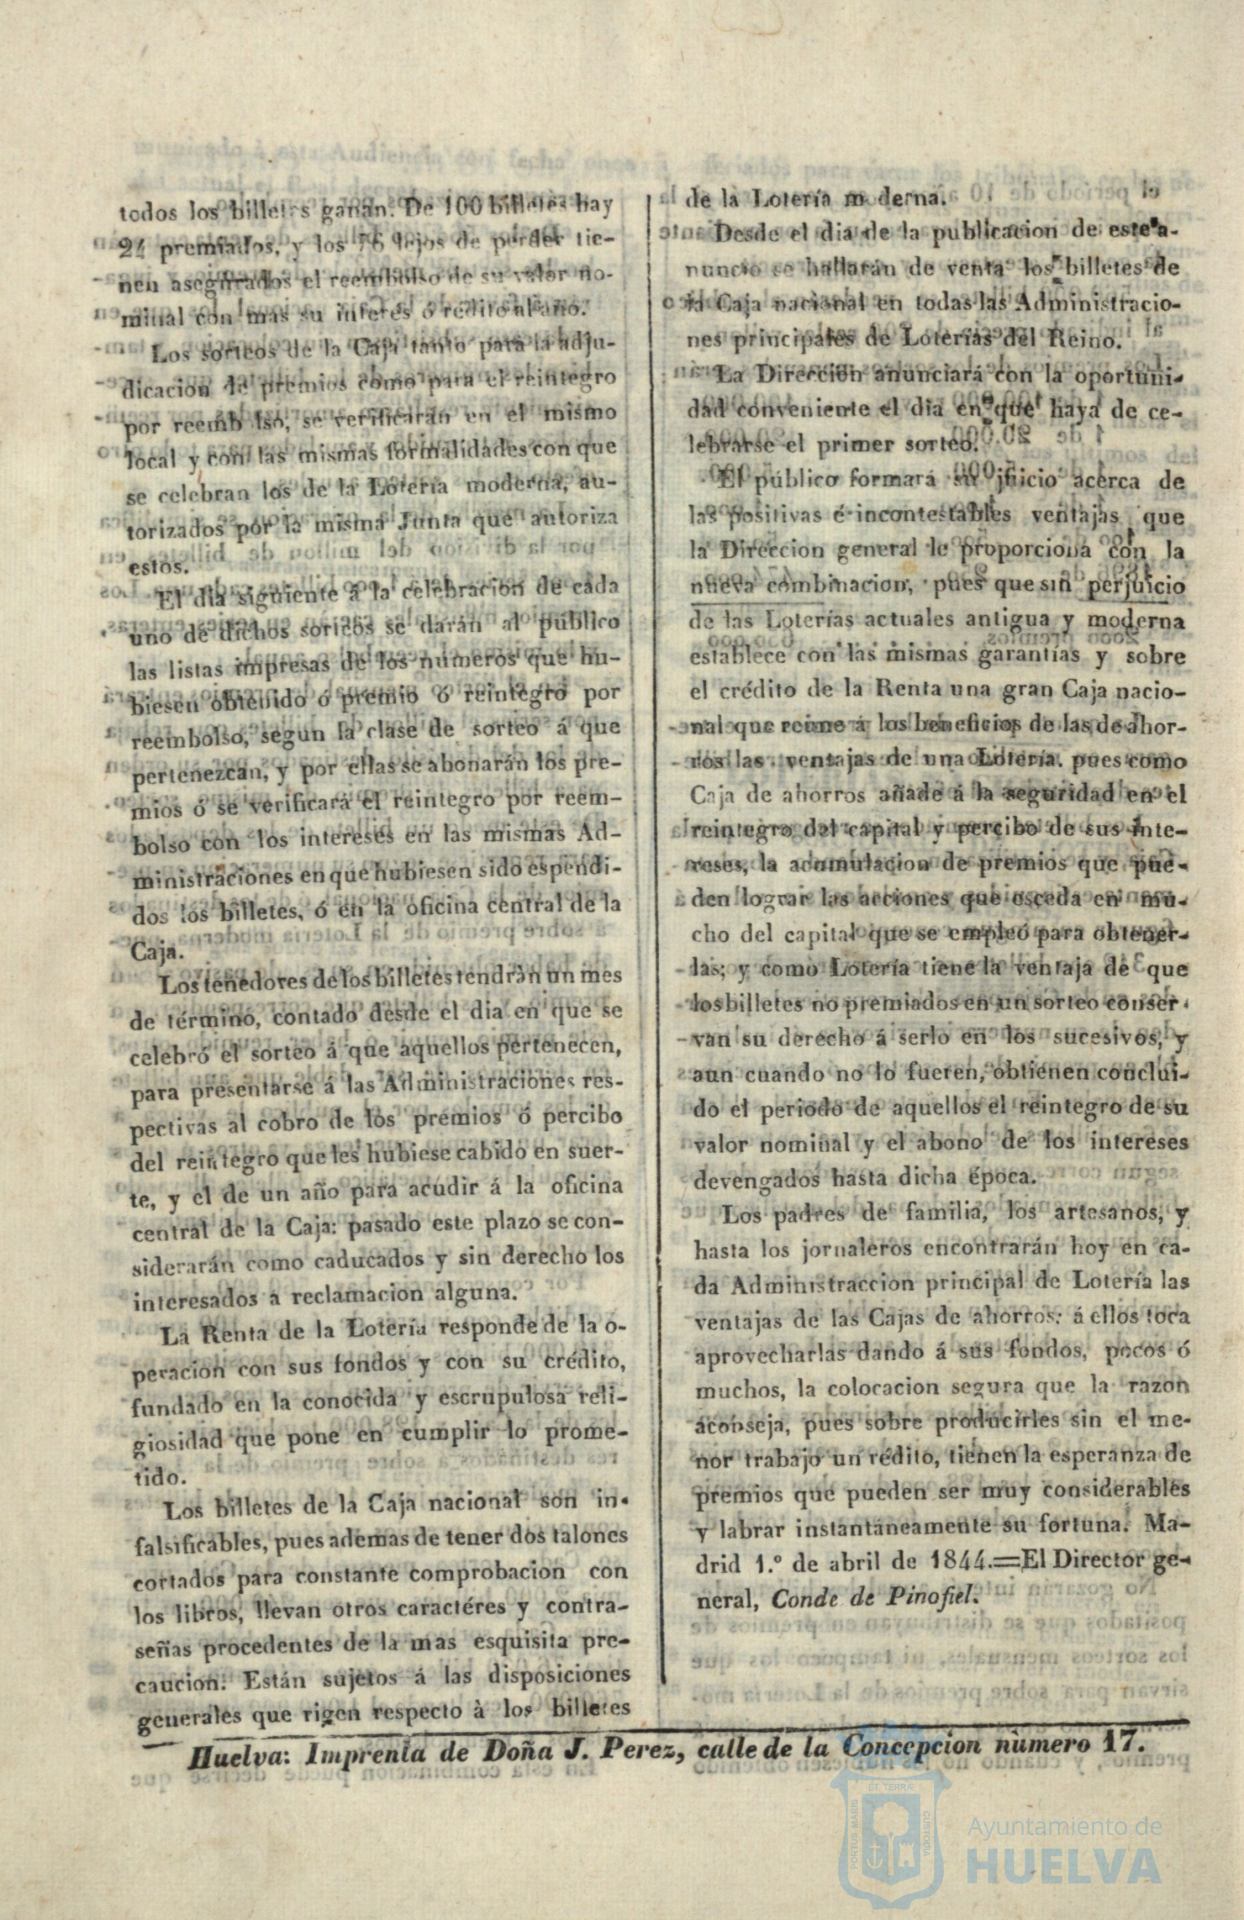 todos los billetes ganan. De 100 billetes hay
24 premiados, y los 76 lejos de perder tie-
nen asegurados el reembolso de su valor no-
minal con mas su interés ó rédito al año.
Los sorteos de la Caja tanto para la adju-
dicacion de premios como para el reintegro
por reemb lso, se verificarán en el mismo
local y con las mismas formalidades con que
se celebran los de la Lotería moderna, au-
torizados por la misma Junta que autoriza
estos.
El dia siguiente á la celebracion de cada
uno de dichos sorteos se darán al público
las listas impresas de los números que hu-
biesen obtenido ó premio ó reintegro por
reembolso, segun la clase de sorteo á que
pertenezcan, y por ellas se abonarán los pre-
mios ó se verificará el reintegro por reem-
bolso con los intereses en las mismas Ad-
ministraciones en que hubiesen sido espendi-
dos los billetes, ó en la oficina central de la
Caja.
Los tenedores de los billetes tendràn un mes
de término, contado desde el dia en que se
celebró el sorteo á que aquellos pertenecen,
para presentarse á las Administraciones res-
pectivas al cobro de los premios ó percibo
del reintegro que les hubiese cabido en suer-
te, y el de un año para acudir á la oficina
central de la Caja: pasado este plazo se con-
siderarán como caducados y sin derecho los
interesados a reclamacion alguna.
La Renta de la Lotería responde de la o-
peracion con sus fondos y con su crédito,
fundado en la conocida y escrupulosa reli-
giosidad que pone en cumplir lo prome-
tido.
Los billetes de la Caja nacional son in-
falsificables, pues ademas de tener dos talones
cortados para constante comprobacion con
los libros, llevan otros caractéres y contra-
señas procedentes de la mas esquisita pre-
caucion. Están sujetos á las disposiciones
generales que rigen respecto à los billetes
de la Lotería m derna.
Desde el dia de la publicacion de este a-
nuncio se hallarán de venta los billetes de
la Caja nacional en todas las Administracio-
nes principales de Loterías del Reino.
La Direccion anunciará con la oportuni-
dad conveniente el dia en que haya de ce-
lebrarse el primer sorteo.
El público formará su juicio acerca de
las positivas é incontestables ventajas que
la Direccion general le proporciona con la
nueva combinacion, pues que sin perjuicio
de las Loterías actuales antigua y moderna
establece con las mismas garantías y sobre
el crédito de la Renta una gran Caja nacio-
nal que reune á los beneficios de las de ahor-
ros las ventajas de una Lotería. pues como
Caja de ahorros añade á la seguridad en el
reintegro del capital y percibo de sus inte-
reses, la acumulacion de premios que pue-
den lograr las acciones que esceda en mu-
cho del capital que se empleó para obtener-
las; y como Lotería tiene la ventaja de que
los billetes no premiados en un sorteo conser-
van su derecho á serlo en los sucesivos, y
aun cuando no lo fueren, obtienen conclui-
do el periodo de aquellos el reintegro de su
valor nominal y el abono de los intereses
devengados hasta dicha época.
Los padres de familia, los artesanos, y
hasta los jornaleros encontrarán hoy en ca-
da Administraccion principal de Lotería las
ventajas de las Cajas de ahorros: á ellos toca
aprovecharlas dando á sus fondos, pocos ó
muchos, la colocacion segura que la razon
aconseja, pues sobre producirles sin el me-
nor trabajo un rédito, tienen la esperanza de
premios que pueden ser muy considerables
y labrar instantáneamente su fortuna. Ma-
drid 1.º de abril de 1844.=El Director ge-
neral, Conde de Pinofiel.
Huelva: Imprenta de Doña J. Perez, calle de la Concepcion nùmero 17.
ET TERRÆ
PORTUS MARIS
CUSTODIA
Ayuntamiento de
HUELVA